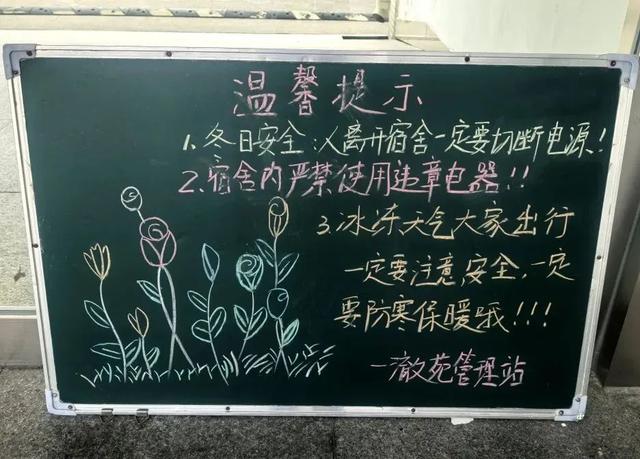 温馨提示
1.冬日安全:人离开宿舍一定要切断电源!
2.宿舍内严禁使用违章电器!!
3.冰冻天气大家出行
一定要注意安全,一定
要防寒保暖哦!!!
一澈苑管理站